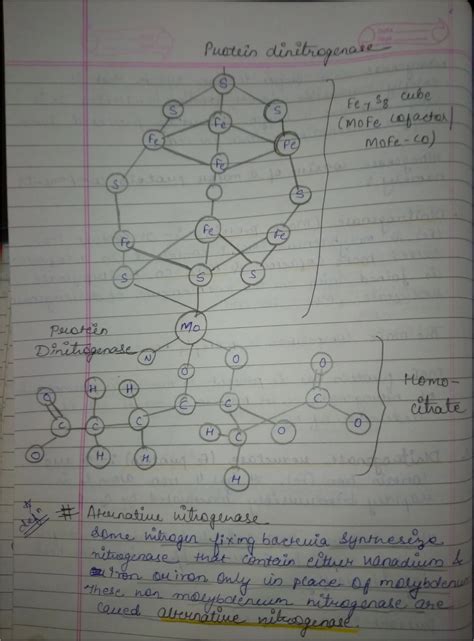 Protein dinitrogenase
S
S S
Fe Fe Fe
Fe
S S
Fe Fe Fe
S S S
Mo
Fe7 S8 cube
(MoFe cofactor/
MoFe-co)
Protein
Dinitrogenase
N O O
O H H O
C C C C C C
O H O O H O O
H
Homo-
citrate
* defn
# Alternative nitrogenase
Some nitrogen fixing bacteria synthesize
nitrogenase that contain either vanadium &
iron or iron only in place of molybdenum
These non molybdenum nitrogenase are
called alternative nitrogenase.